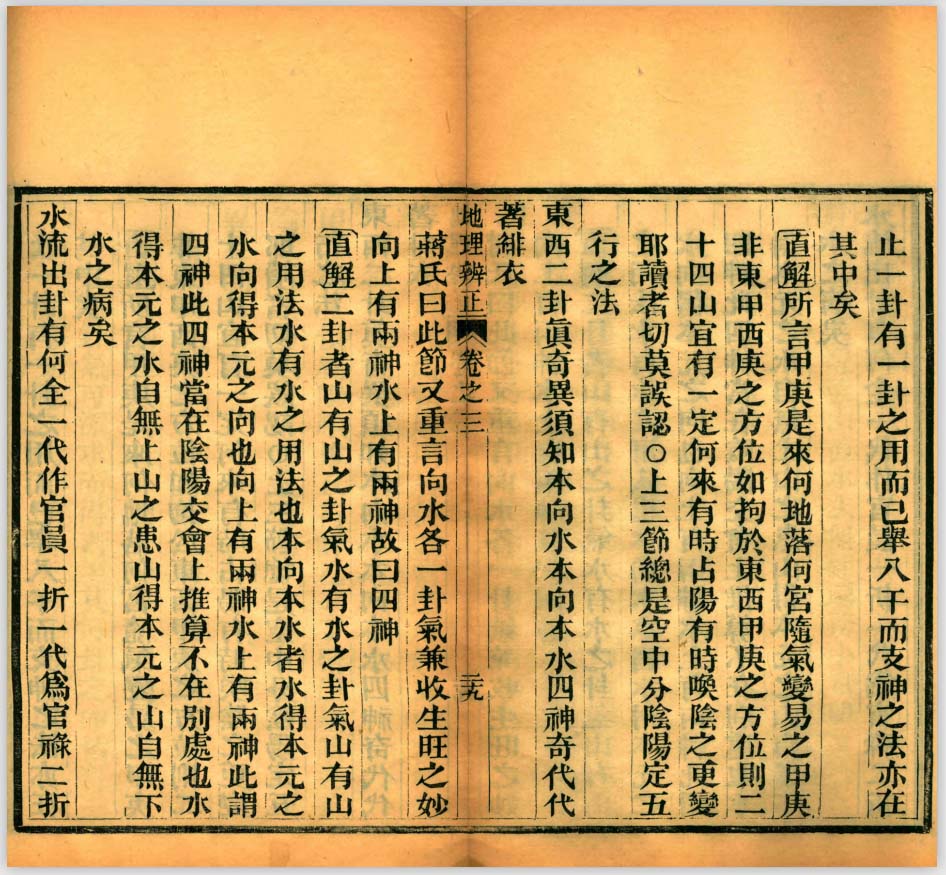 止一卦有一卦之用而已舉八干而支神之法亦在
其中矣
直解所言甲庚是來何地落何宮隨氣變易之甲庚
非東甲西庚之方位如拘於東西甲庚之方位則二
十四山宜有一定何來有時占陽有時喚陰之更變
耶讀者切莫誤認○上三節總是空中分陰陽定五
行之法
東西二卦眞奇異須知本向水本向本水四神奇代代
著緋衣
地理辨正 卷之三 三九
蔣氏曰此節又重言向水各一卦氣兼收生旺之妙
向上有兩神水上有兩神故曰四神
直解二卦者山有山之卦氣水有水之卦氣山有山
之用法水有水之用法也本向本水者水得本元之
水向得本元之向也向上有兩神水上有兩神此謂
四神此四神當在陰陽交會上推算不在別處也水
得本元之水自無上山之患山得本元之山自無下
水之病矣
水流出卦有何全一代作官員一折一代爲官祿二折